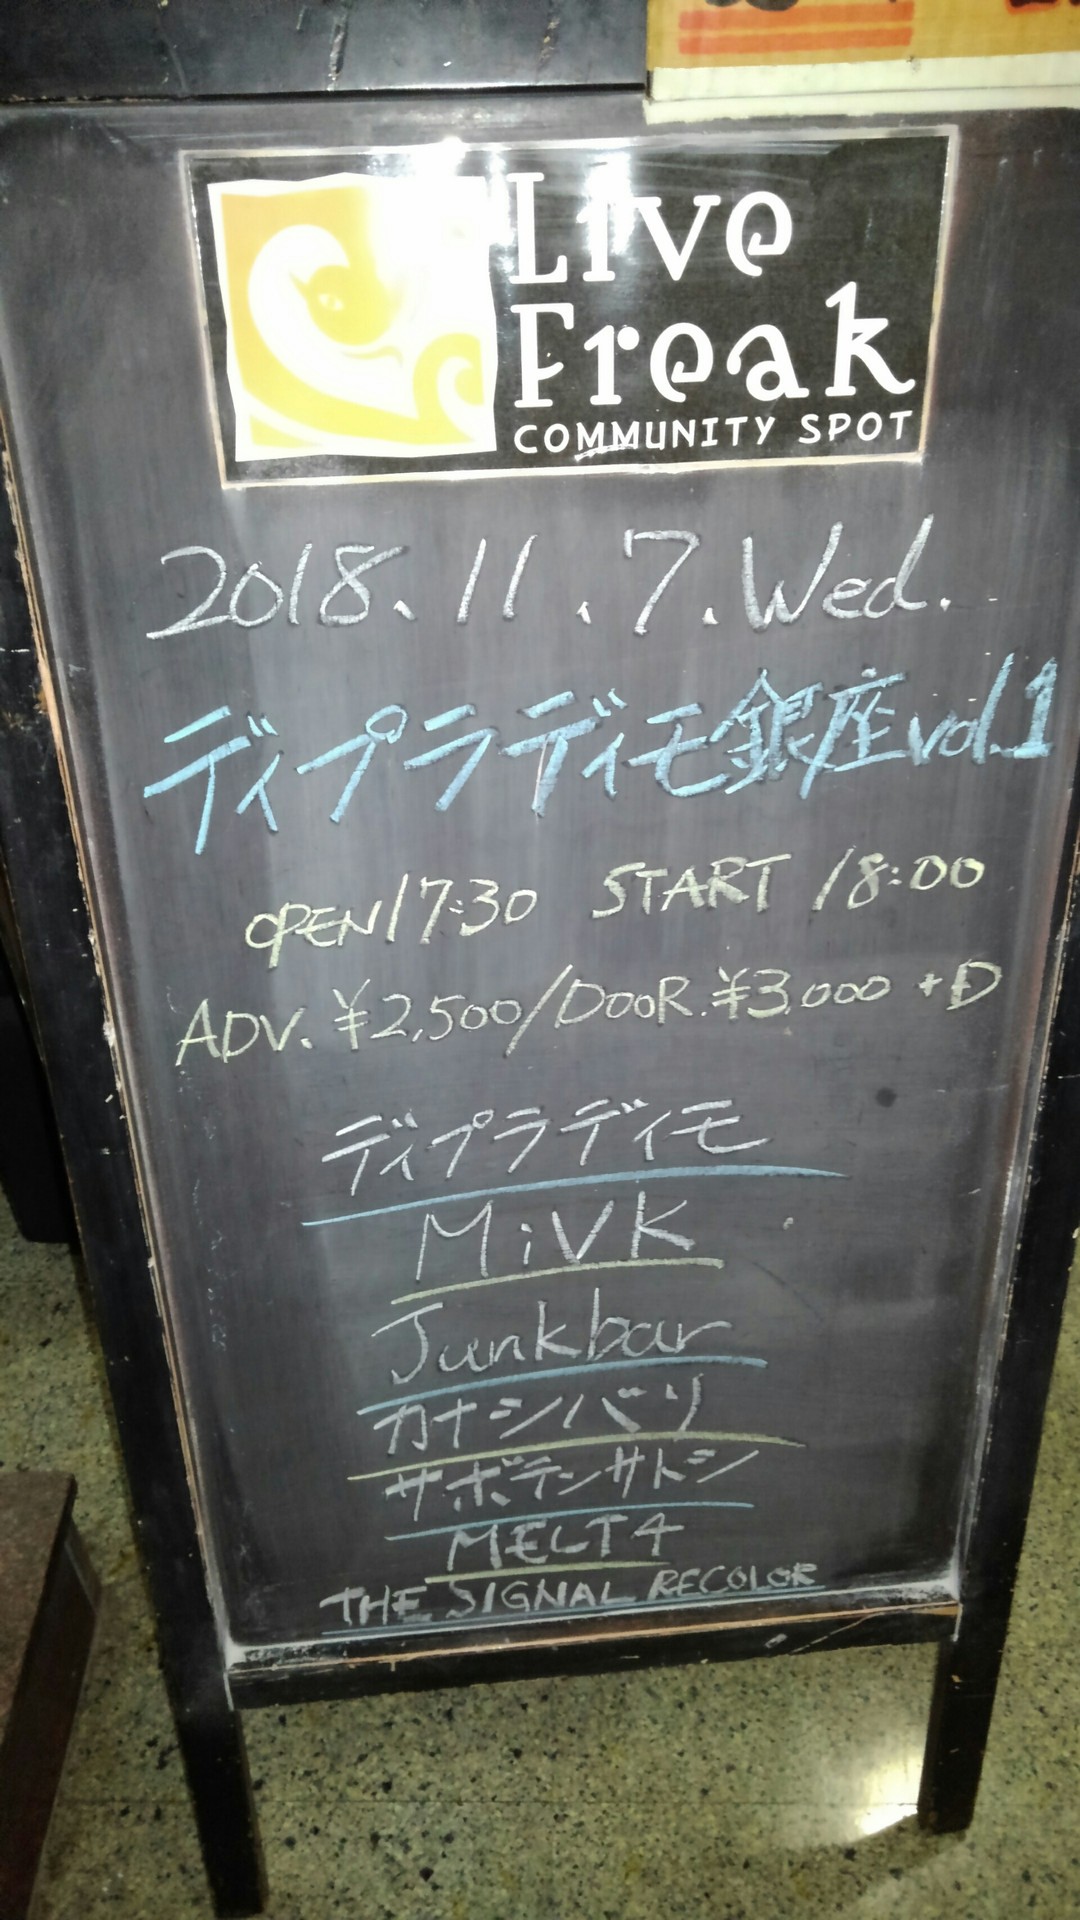 Live
Freak
COMMUNITY SPOT
2018.11.7.Wed.
ディプラディモ銀座vol.1
OPEN17:30 START 18:00
ADV.¥2,500/DOOR.¥3.000 +D
ディプラディモ
MiVK
Junkbar
カナシバリ
サボテンサトシ
MELT4
THE SIGNAL RECOLOR